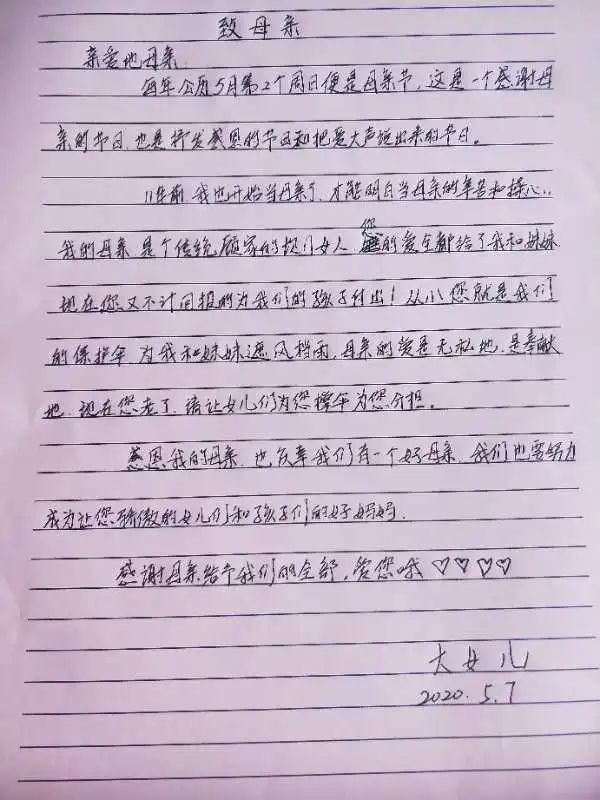 致母亲
亲爱地母亲:
每年公历5月第2个周日便是母亲节,这是一个感谢母
亲的节日,也是抒发感恩的节日和把爱大声说出来的节日。
11年前,我也开始当母亲了,才能明白当母亲的辛苦和操心..
我的母亲是个传统顾家的女人,您的爱全都给了我和妹妹
现在您又不计回报的为我们的孩子付出!从小您就是我们
的保护伞,为我和妹妹遮风挡雨,母亲的爱是无私地,是奉献
地,现在您老了,请让女儿们为您撑伞为您分担。
感恩我的母亲,也庆幸我们有一个好母亲,我们也要努力
成为让您骄傲的女儿们和孩子们的好妈妈.
感谢母亲给予我们的全部,爱您哦♡♡♡♡
大女儿
2020.5.7